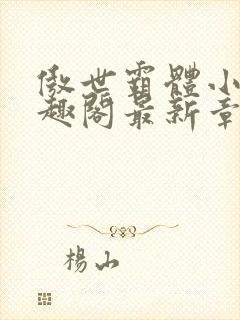 傲世霸體小
趣閣最新章
楊山